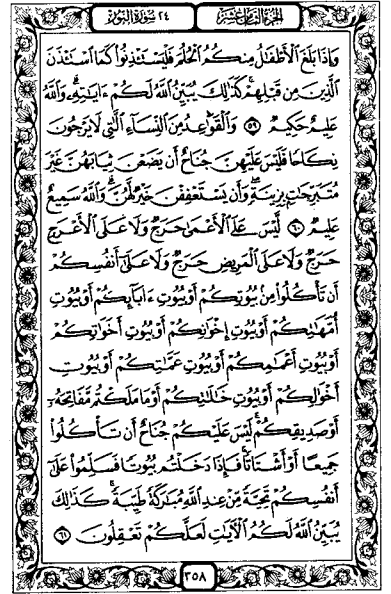 الجزء الثامن عشر
٢٤ سورة النور
وَإِذَا بَلَغَ ٱلْأَطْفَٰلُ مِنكُمُ ٱلْحُلُمَ فَلْيَسْتَـْٔذِنُوا۟ كَمَا ٱسْتَـْٔذَنَ
ٱلَّذِينَ مِن قَبْلِهِمْ ۚ كَذَٰلِكَ يُبَيِّنُ ٱللَّهُ لَكُمْ ءَايَٰتِهِۦ ۗ وَٱللَّهُ
عَلِيمٌ حَكِيمٌ ٥٩ وَٱلْقَوَٰعِدُ مِنَ ٱلنِّسَآءِ ٱلَّٰتِى لَا يَرْجُونَ
نِكَاحًا فَلَيْسَ عَلَيْهِنَّ جُنَاحٌ أَن يَضَعْنَ ثِيَابَهُنَّ غَيْرَ
مُتَبَرِّجَٰتٍۭ بِزِينَةٍ ۖ وَأَن يَسْتَعْفِفْنَ خَيْرٌ لَّهُنَّ ۗ وَٱللَّهُ سَمِيعٌ
عَلِيمٌ ٦٠ لَّيْسَ عَلَى ٱلْأَعْمَىٰ حَرَجٌ وَلَا عَلَى ٱلْأَعْرَجِ
حَرَجٌ وَلَا عَلَى ٱلْمَرِيضِ حَرَجٌ وَلَا عَلَىٰٓ أَنفُسِكُمْ
أَن تَأْكُلُوا۟ مِنۢ بُيُوتِكُمْ أَوْ بُيُوتِ ءَابَآئِكُمْ أَوْ بُيُوتِ
أُمَّهَٰتِكُمْ أَوْ بُيُوتِ إِخْوَٰنِكُمْ أَوْ بُيُوتِ أَخَوَٰتِكُمْ
أَوْ بُيُوتِ أَعْمَٰمِكُمْ أَوْ بُيُوتِ عَمَّٰتِكُمْ أَوْ بُيُوتِ
أَخْوَٰلِكُمْ أَوْ بُيُوتِ خَٰلَٰتِكُمْ أَوْ مَا مَلَكْتُم مَّفَاتِحَهُۥٓ
أَوْ صَدِيقِكُمْ ۚ لَيْسَ عَلَيْكُمْ جُنَاحٌ أَن تَأْكُلُوا۟
جَمِيعًا أَوْ أَشْتَاتًا ۚ فَإِذَا دَخَلْتُم بُيُوتًا فَسَلِّمُوا۟ عَلَىٰٓ
أَنفُسِكُمْ تَحِيَّةً مِّنْ عِندِ ٱللَّهِ مُبَٰرَكَةً طَيِّبَةً ۚ كَذَٰلِكَ
يُبَيِّنُ ٱللَّهُ لَكُمُ ٱلْـَٔايَٰتِ لَعَلَّكُمْ تَعْقِلُونَ ٦١
٣٥٨